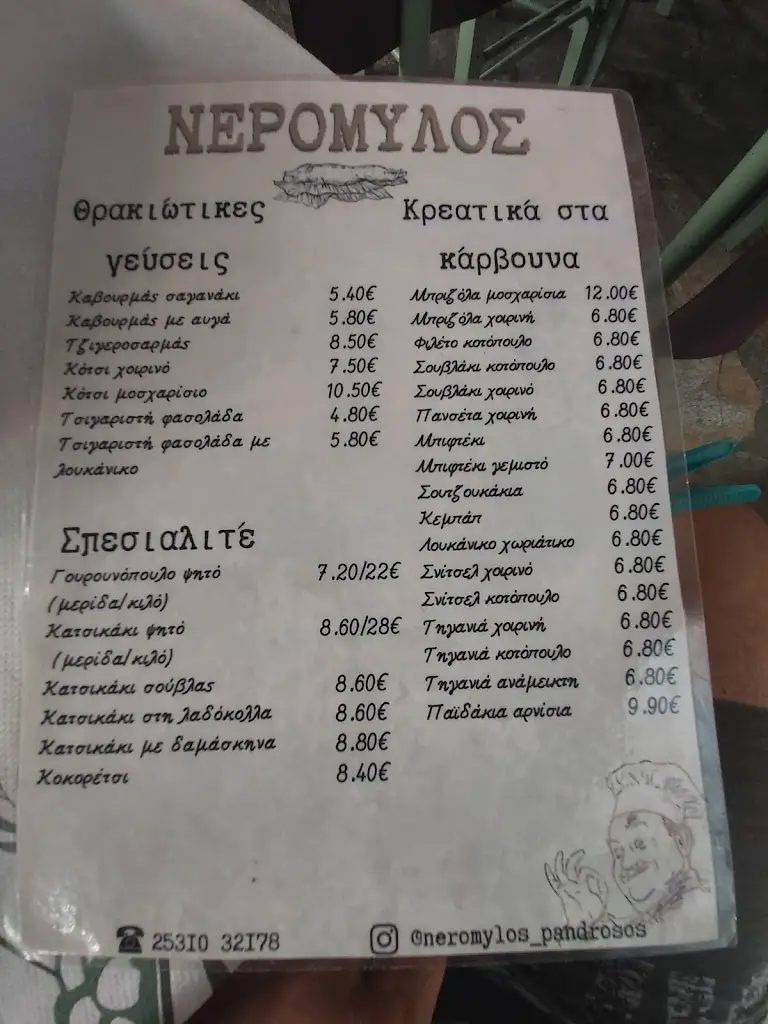 ΝΕΡΟΜΥΛΟΣ
Θρακιώτικες
γεύσεις
Καβουρμάς σαγανάκι 5.40€
Καβουρμάς με αυγά 5.80€
Τζιγεροσαρμάς 8.50€
Κότσι χοιρινό 7.50€
Κότσι μοσχαρίσιο 10.50€
Τσιγαριστή φασολάδα 4.80€
Τσιγαριστή φασολάδα με 5.80€
λουκάνικο
Σπεσιαλιτέ
Γουρουνόπουλο ψητό 7.20/22€
(μερίδα/κιλό)
Κατσικάκι ψητό 8.60/28€
(μερίδα/κιλό)
Κατσικάκι σούβλας 8.60€
Κατσικάκι στη λαδόκολλα 8.60€
Κατσικάκι με δαμάσκηνα 8.80€
Κοκορέτσι 8.40€
Κρεατικά στα
κάρβουνα
Μπριζόλα μοσχαρίσια 12.00€
Μπριζόλα χοιρινή 6.80€
Φιλέτο κοτόπουλο 6.80€
Σουβλάκι κοτόπουλο 6.80€
Σουβλάκι χοιρινό 6.80€
Πανσέτα χοιρινή 6.80€
Μπιφτέκι 6.80€
Μπιφτέκι γεμιστό 7.00€
Σουτζουκάκια 6.80€
Κεμπάπ 6.80€
Λουκάνικο χωριάτικο 6.80€
Σνίτσελ χοιρινό 6.80€
Σνίτσελ κοτόπουλο 6.80€
Τηγανιά χοιρινή 6.80€
Τηγανιά κοτόπουλο 6.80€
Τηγανιά ανάμεικτη 6.80€
Παϊδάκια αρνίσια 9.90€
25310 32178
@neromylos_pandrosos